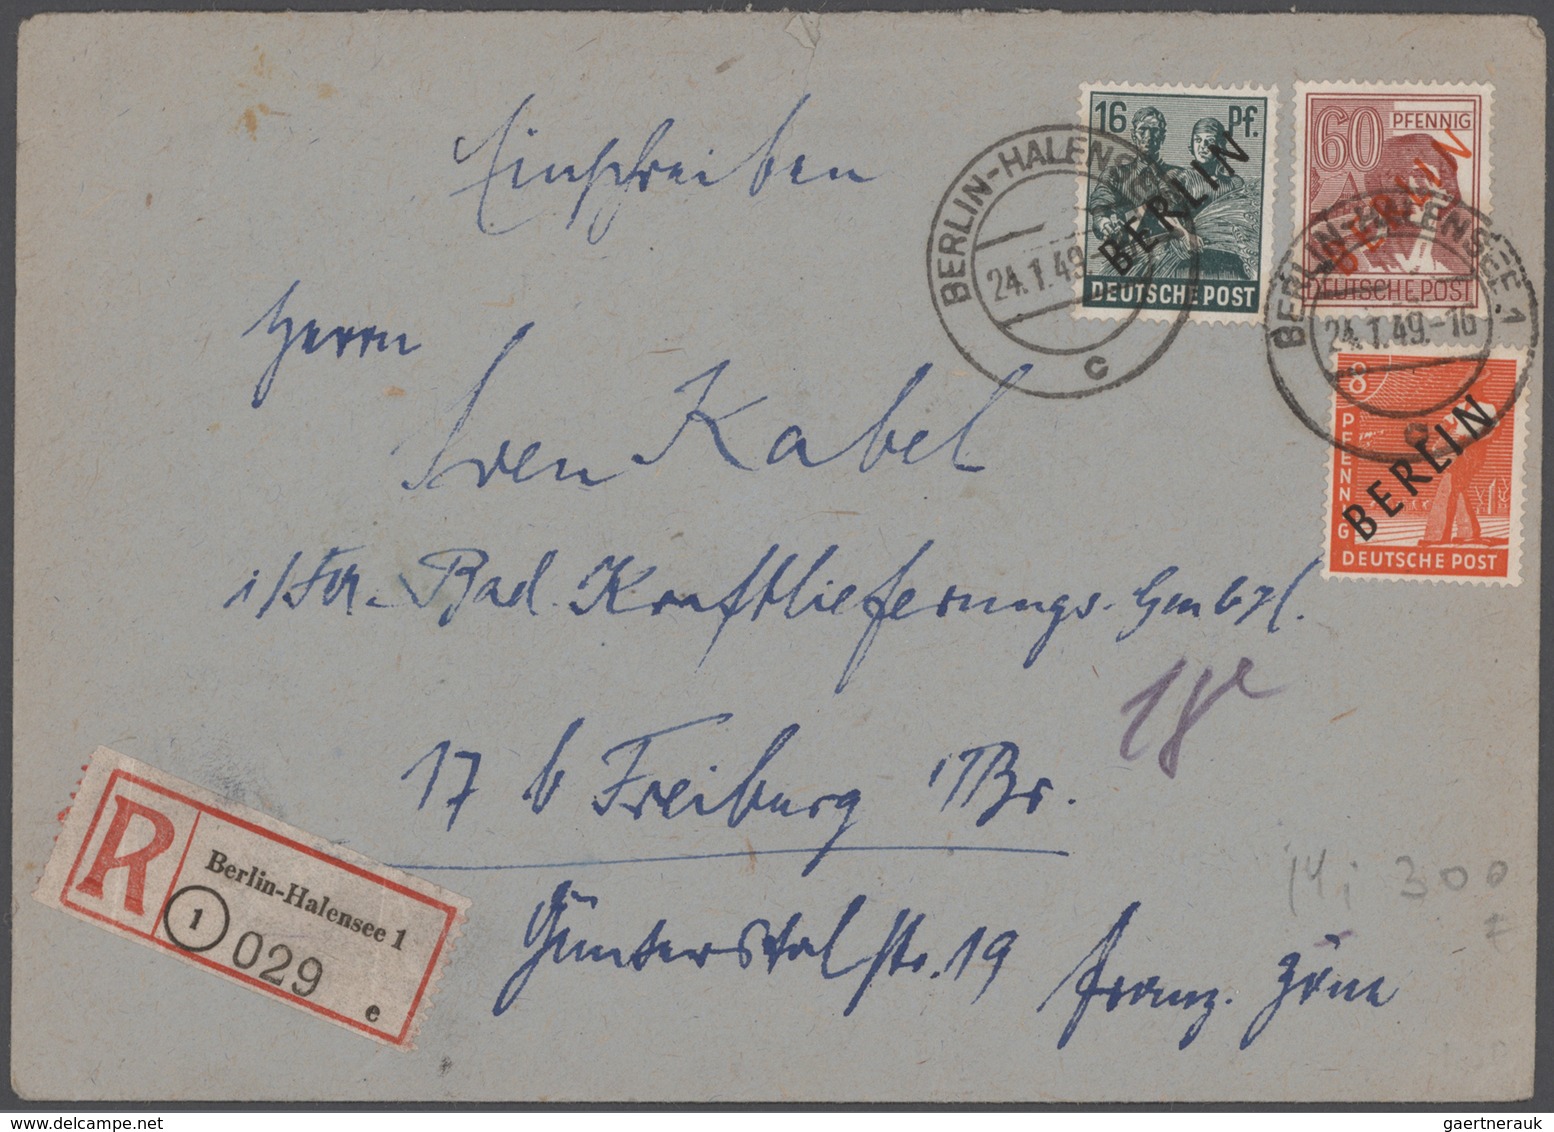 Einschreiben
16 Pf.
BERLIN
DEUTSCHE POST
60 PFENNIG
BERLIN
DEUTSCHE POST
BERLIN-HALENSEE
24.1.49
c
BERLIN-HALENSEE 1
24.1.49.-16
8
PFENNIG
BERLIN
DEUTSCHE POST
Herrn
Sven Kabel
i/Fa. Bad. Kraftlieferungs-GmbH.
18
17 b Freiburg i/Br.
Günterstalstr. 19 franz. Zone
R
Berlin-Halensee 1
1
029
e
Mi 300
gaertnerauk